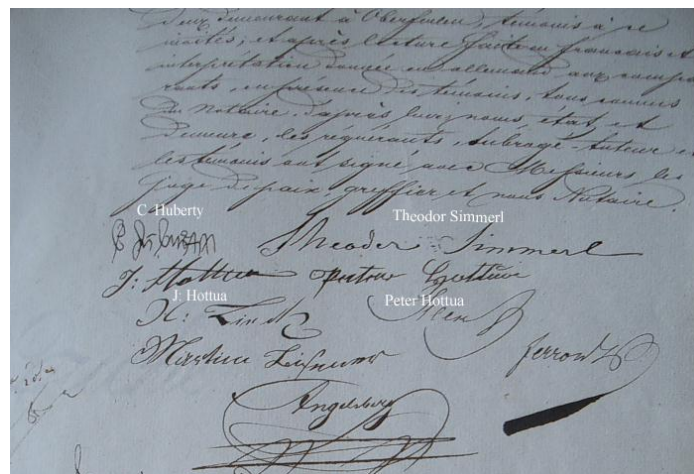 deux demeurant à Oberfeulen, témoins à ce
invités; et après lecture faite en français et
interprétation donnée en allemand aux compa
rants, en présence des témoins, tous connus
du Notaire, d'après leurs noms, état et
demeure, les réquérants, subrogé-tuteur et
les témoins ont signé avec Messieurs les
juge de paix, greffier et nous Notaire.
C. Huberty Theodor Simmerl
Theodor Simmerl
J: Hottua Peter Hottua
J: Hottua Peter Hottua
Martin
Angelsberg